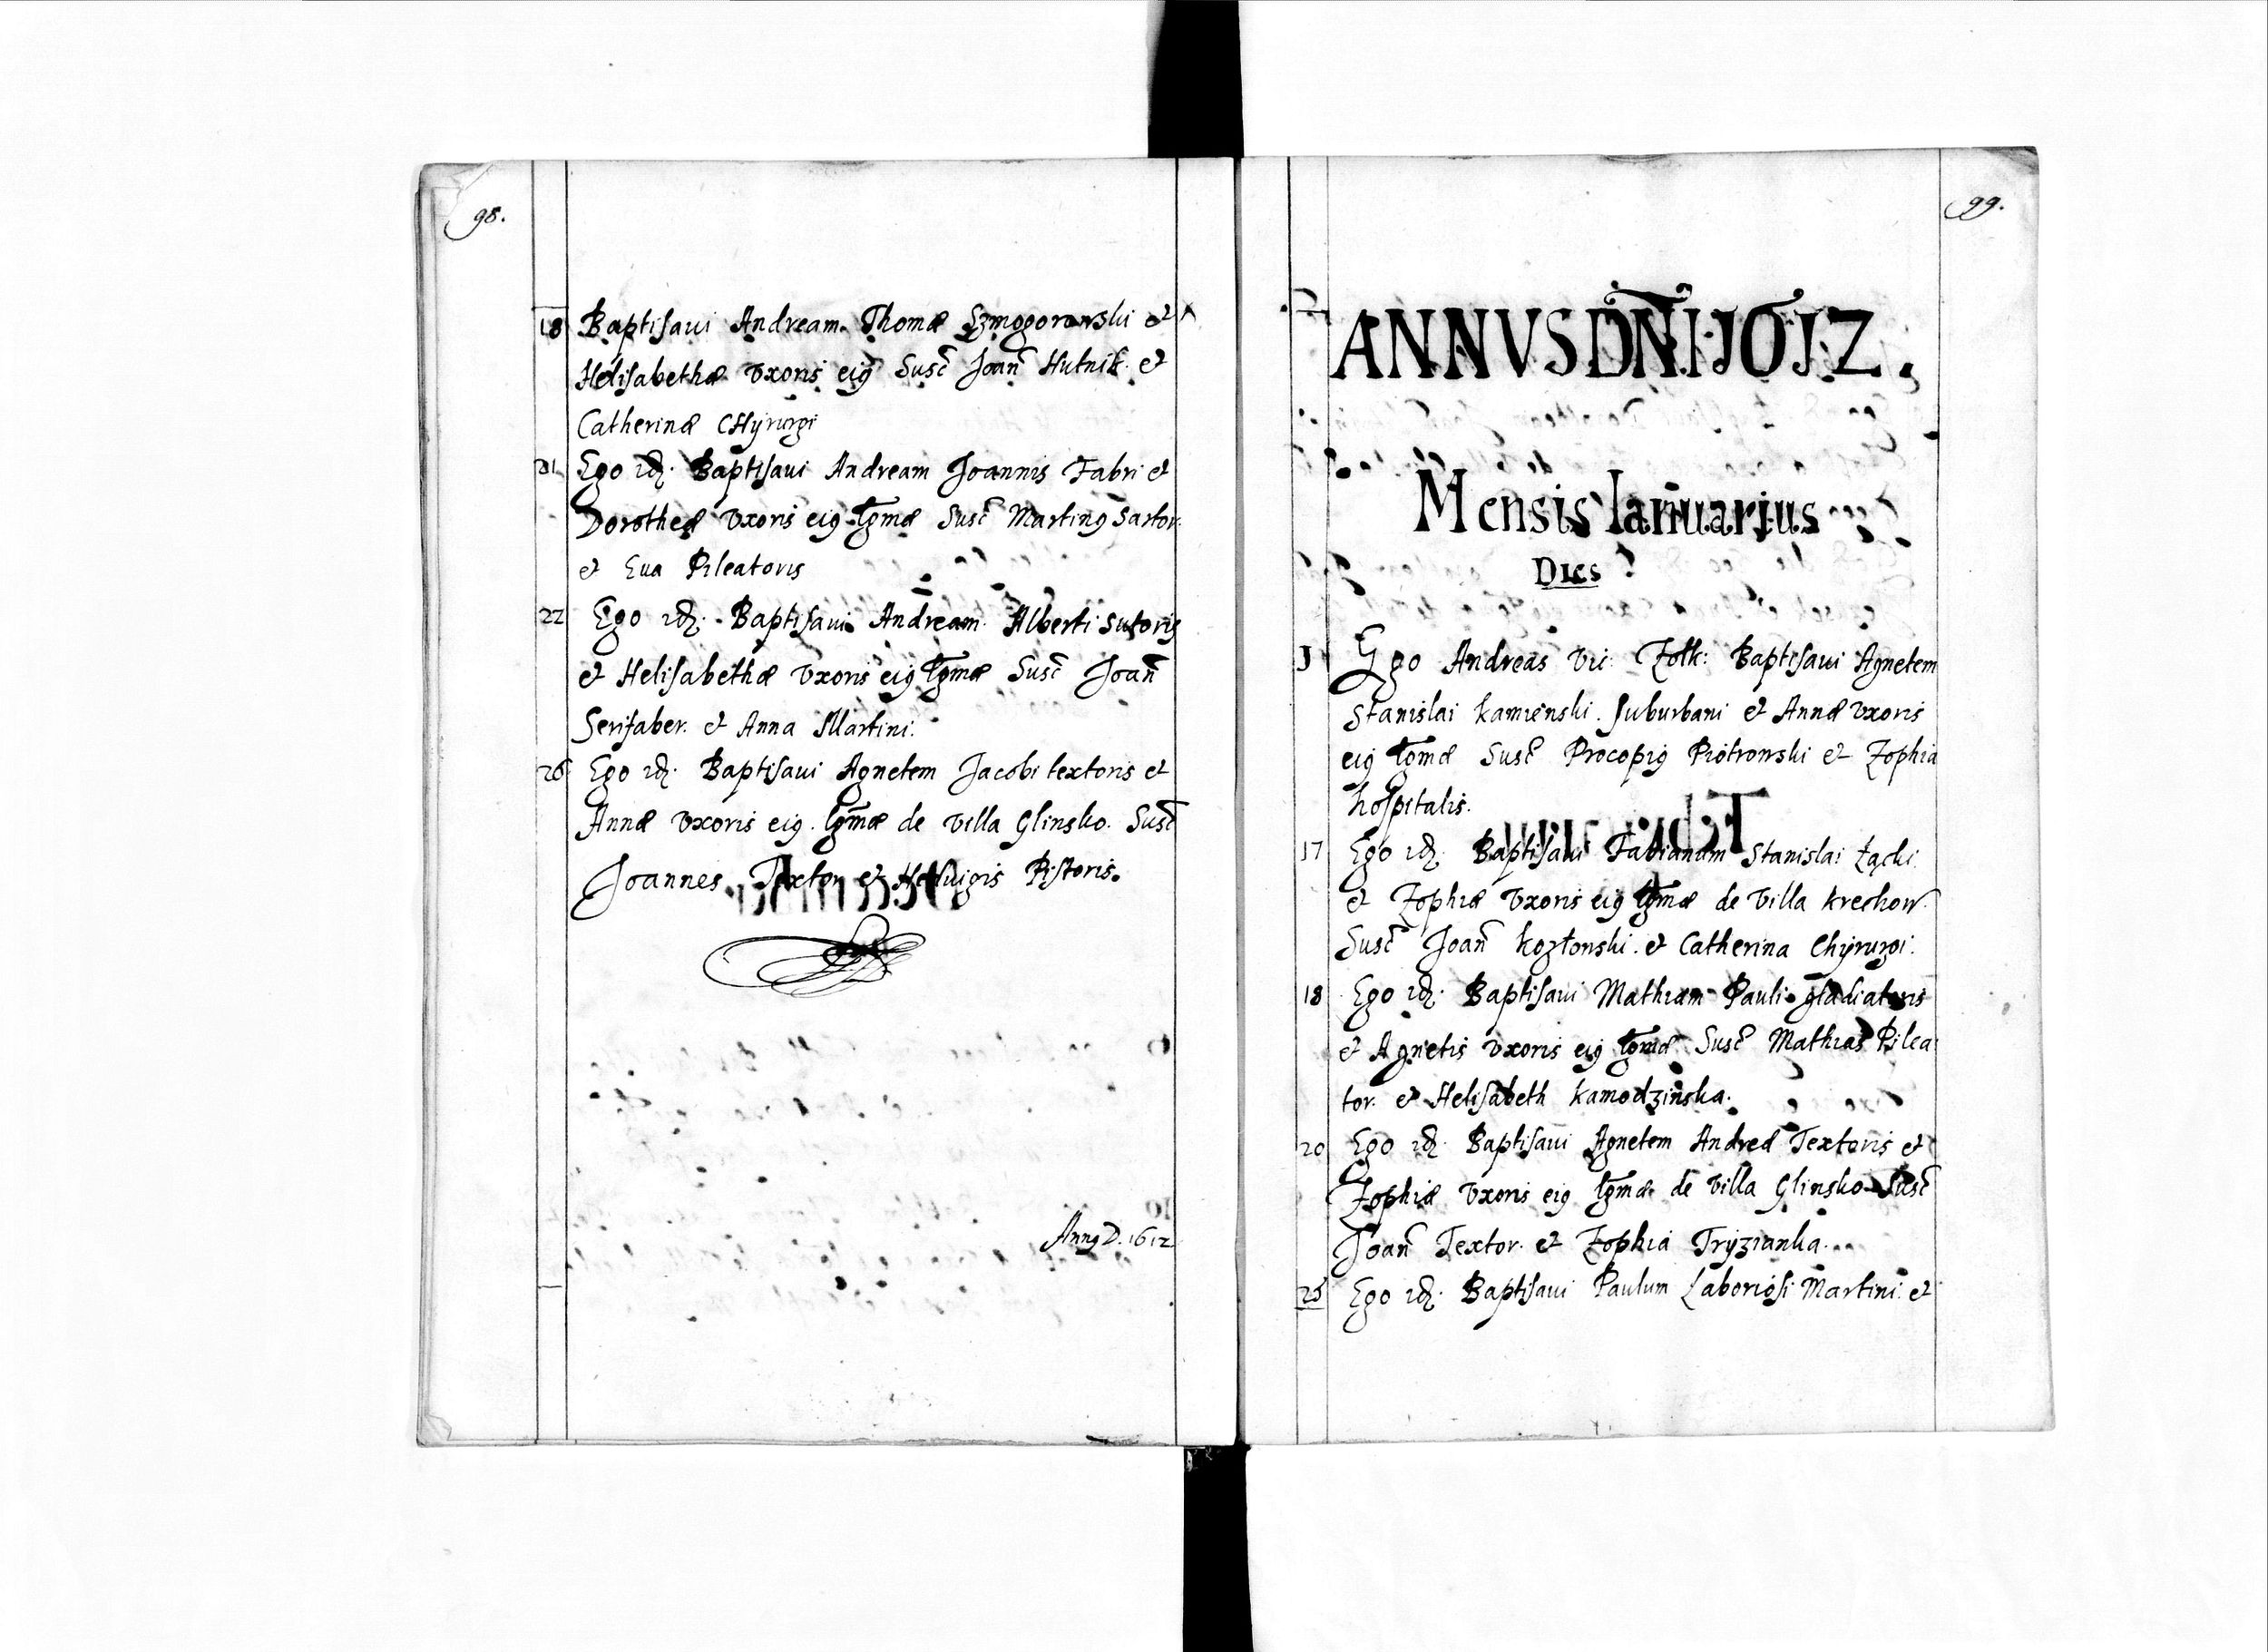 98.
18 Baptisaui Andream Thomæ Szmogorowski et
Helisabethæ vxoris eiꝰ Susc̃ Joan̄ Hutnik et
Catherinæ CHyrurgi
21 Ego id. Baptisaui Andream Joannis Fabri et
Dorotheæ vxoris eiꝰ lgm̄æ Susc̃ Martinꝰ Sartor
et Eua Pileatoris
22 Ego id. Baptisaui Andream Alberti sutoris
et Helisabethæ vxoris eiꝰ lgm̄æ Susc̃ Joan̄
Serifaber. et Anna Martini.
26 Ego id. Baptisaui Agnetem Jacobi textoris et
Annæ vxoris eiꝰ lgm̄æ de villa Glinsko. Susc̃
Joannes Textor et Heduigis Pistoris.
Annꝰ D. 1612
99.
ANNVS DN̄I 1612.
Mensis Ianuarius
Dies
1 Ego Andreas Vic: Zolk: Baptisaui Agnetem
Stanislai Kamienski Suburbani et Annæ vxoris
eiꝰ lgm̄æ Susc̃ Procopiꝰ Piotrowski et Zophia
hospitalis.
17 Ego id. Baptisaui Fabianum Stanislai Łącki
et Zophiæ vxoris eiꝰ lgm̄æ de villa Krechow
Susc̃ Joan̄ Kozłowski. et Catherina Chyrurgi.
18 Ego id. Baptisaui Mathiam Pauli gladiatoris
et Agnetis vxoris eiꝰ lgm̄æ Susc̃ Mathias Pilea
tor. et Helisabeth Kamodzinska.
20 Ego id. Baptisaui Agnetem Andreæ Textoris et
Zophiæ vxoris eiꝰ lgm̄æ de villa Glinsko Susc̃
Joan̄ Textor. et Zophia Tryzianka.
25 Ego id. Baptisaui Paulum Laboriosi Martini et